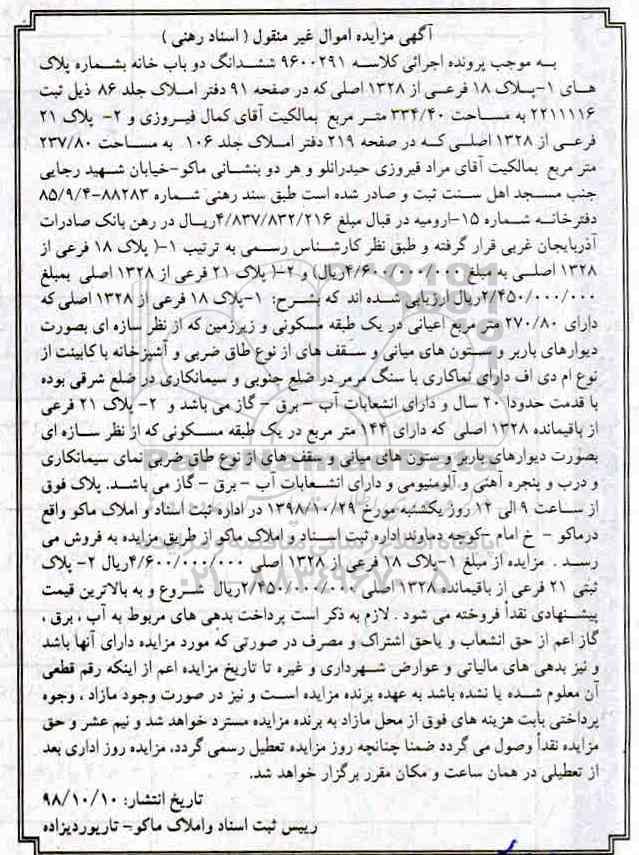 آگهی مزایده اموال غیر منقول ( اسناد رهنی )
به موجب پرونده اجرائی کلاسه ۹۶۰۰۲۹۱ ششدانگ دو باب خانه بشماره پلاک
های ۱-پلاک ۱۸ فرعی از ۱۳۲۸ اصلی که در صفحه ۹۱ دفتر املاک جلد ۸۶ ذیل ثبت
۲۲۱۱۱۱۶ به مساحت ۳۳۴/۴۰ متر مربع بمالکیت آقای کمال فیروزی و ۲- پلاک ۲۱
فرعی از ۱۳۲۸ اصلی که در صفحه ۲۱۹ دفتر املاک جلد ۱۰۶ به مساحت ۲۳۷/۸۰
متر مربع بمالکیت آقای مراد فیروزی حیدرانلو و هر دو بنشانی ماکو-خیابان شهید رجایی
جنب مسجد اهل سنت ثبت و صادر شده است طبق سند رهنی شماره ۸۸۲۸۳-۸۵/۹/۴
دفترخانه شماره ۱۵-ارومیه در قبال مبلغ ۴/۸۳۷/۸۳۲/۲۱۶ریال در رهن بانک صادرات
آذربایجان غربی قرار گرفته و طبق نظر کارشناس رسمی به ترتیب ۱-( پلاک ۱۸ فرعی از
۱۳۲۸ اصلی به مبلغ ۴/۶۰۰/۰۰۰/۰۰۰ریال) و ۲-( پلاک ۲۱ فرعی از ۱۳۲۸ اصلی بمبلغ
۲/۴۵۰/۰۰۰/۰۰۰ریال ارزیابی شده اند که بشرح: ۱-پلاک ۱۸ فرعی از ۱۳۲۸ اصلی که
دارای ۲۷۰/۸۰ متر مربع اعیانی در یک طبقه مسکونی و زیرزمین که از نظر سازه ای بصورت
دیوارهای باربر و ستون های میانی و سقف های از نوع طاق ضربی و آشپزخانه با کابینت از
نوع ام دی اف دارای نماکاری با سنگ مرمر در ضلع جنوبی و سیمانکاری در ضلع شرقی بوده
با قدمت حدودا ۲۰ سال و دارای انشعابات آب - برق - گاز می باشد و ۲- پلاک ۲۱ فرعی
از باقیمانده ۱۳۲۸ اصلی که دارای ۱۴۴ متر مربع در یک طبقه مسکونی که از نظر سازه ای
بصورت دیوارهای باربر و ستون های میانی و سقف های از نوع طاق ضربی نمای سیمانکاری
و درب و پنجره آهنی و آلومنیومی و دارای انشعابات آب - برق - گاز می باشد. پلاک فوق
از ساعت ۹ الی ۱۲ روز یکشنبه مورخ ۱۳۹۸/۱۰/۲۹ در اداره ثبت اسناد و املاک ماکو واقع
درماکو - خ امام -کوچه دماوند اداره ثبت اسناد و املاک ماکو از طریق مزایده به فروش می
رسد . مزایده از مبلغ ۱-پلاک ۱۸ فرعی از ۱۳۲۸ اصلی ۴/۶۰۰/۰۰۰/۰۰۰ریال ۲- پلاک
ثبتی ۲۱ فرعی از باقیمانده ۱۳۲۸ اصلی ۲/۴۵۰/۰۰۰/۰۰۰ریال شروع و به بالاترین قیمت
پیشنهادی نقداً فروخته می شود . لازم به ذکر است پرداخت بدهی های مربوط به آب ، برق ،
گاز اعم از حق انشعاب و یاحق اشتراک و مصرف در صورتی که مورد مزایده دارای آنها باشد
و نیز بدهی های مالیاتی و عوارض شهرداری و غیره تا تاریخ مزایده اعم از اینکه رقم قطعی
آن معلوم شده یا نشده باشد به عهده برنده مزایده است و نیز در صورت وجود مازاد ، وجوه
پرداختی بابت هزینه های فوق از محل مازاد به برنده مزایده مسترد خواهد شد و نیم عشر و حق
مزایده نقداً وصول می گردد ضمنا چنانچه روز مزایده تعطیل رسمی گردد، مزایده روز اداری بعد
از تعطیلی در همان ساعت و مکان مقرر برگزار خواهد شد.
تاریخ انتشار: ۹۸/۱۰/۱۰
رییس ثبت اسناد واملاک ماکو- تاریوردیزاده